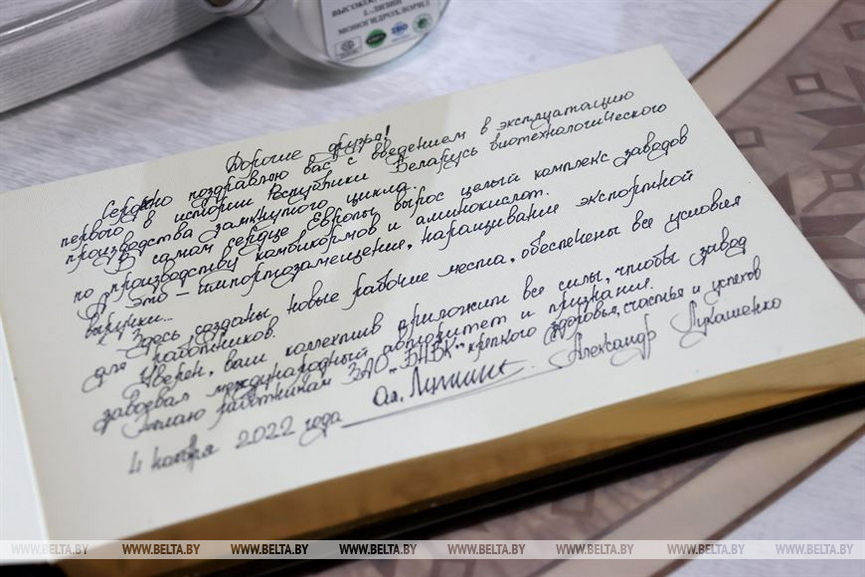 ВЫСОКОК
L-ЛИЗИН
МОНОГИДРОХЛОРИД
ISO
Дорогие друзья!
Сердечно поздравляю вас с введением в эксплуатацию
первого в истории Республики Беларусь биотехнологического
производства замкнутого цикла.
В самом сердце Европы вырос целый комплекс заводов
по производству комбикормов и аминокислот.
А это – импортозамещение, наращивание экспортной
выручки...
Здесь созданы новые рабочие места, обеспечены все условия
для работников.
Уверен, ваш коллектив приложит все силы, чтобы завод
завоевал международный авторитет и признание.
Желаю работникам ЗАО „БНБК" крепкого здоровья, счастья и успехов
4 ноября 2022 года Александр Лукашенко
WWW.BELTA.BY WWW.BELTA.BY WWW.BELTA.BY WWW.BELTA.BY WWW.BELTA.BY WWW.BELTA.BY WWW.BELTA.BY